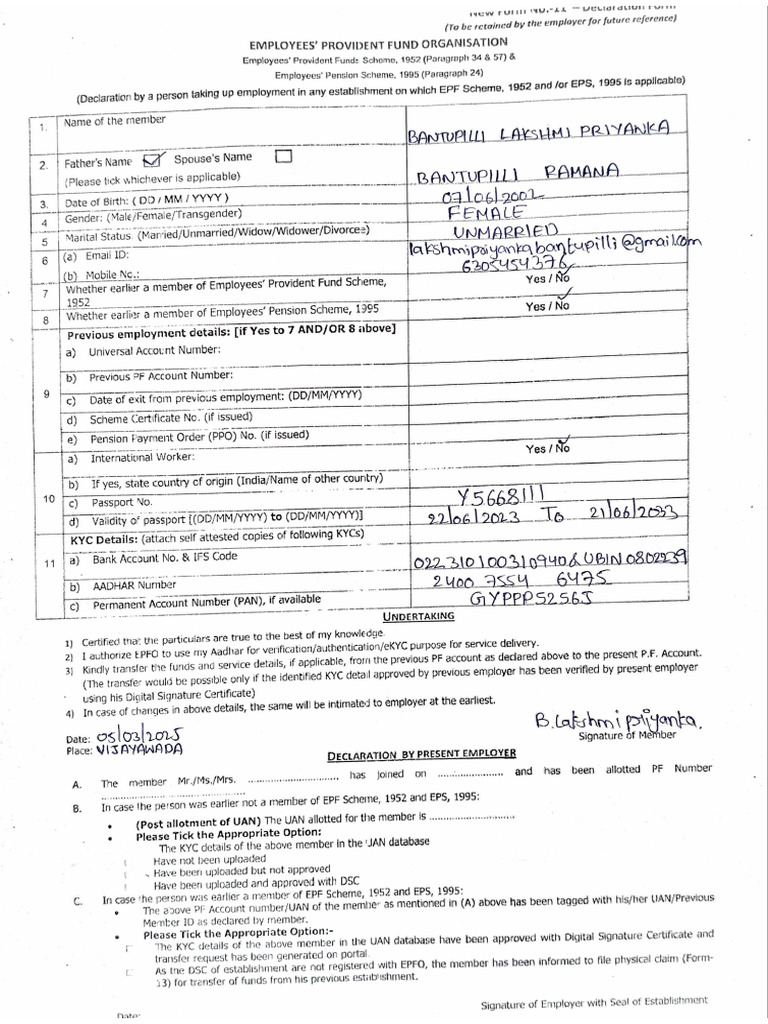 New Form No.-11 – Declaration Form
(To be retained by the employer for future reference)
EMPLOYEES' PROVIDENT FUND ORGANISATION
Employees' Provident Funds Scheme, 1952 (Paragraph 34 & 57) &
Employees' Pension Scheme, 1995 (Paragraph 24)
(Declaration by a person taking up employment in any establishment on which EPF Scheme, 1952 and /or EPS, 1995 is applicable)
1. Name of the member BANTUPILLI LAKSHMI PRIYANKA
2. Father's Name Spouse's Name
(Please tick whichever is applicable) BANTUPILLI RAMANA
3. Date of Birth: ( DD / MM / YYYY ) 07/06/2002
4 Gender: (Male/Female/Transgender) FEMALE
5 Marital Status (Married/Unmarried/Widow/Widower/Divorcee) UNMARRIED
6 (a) Email ID: lakshmipriyankabantupilli@gmail.com
(b) Mobile No.: 6305454376
7 Whether earlier a member of Employees' Provident Fund Scheme, 1952 Yes / No
8 Whether earlier a member of Employees' Pension Scheme, 1995 Yes / No
9 Previous employment details: [if Yes to 7 AND/OR 8 above]
a) Universal Account Number:
b) Previous PF Account Number:
c) Date of exit from previous employment: (DD/MM/YYYY)
d) Scheme Certificate No. (if issued)
e) Pension Payment Order (PPO) No. (if issued)
10 a) International Worker: Yes / No
b) If yes, state country of origin (India/Name of other country)
c) Passport No. Y5668111
d) Validity of passport [(DD/MM/YYYY) to (DD/MM/YYYY)] 22/06/2023 To 21/06/2033
11 KYC Details: (attach self attested copies of following KYCs)
a) Bank Account No. & IFS Code 022310100310940 & UBIN0802239
b) AADHAR Number 2400 7554 6475
c) Permanent Account Number (PAN), if available GYPPP5256J
UNDERTAKING
1) Certified that the particulars are true to the best of my knowledge
2) I authorize EPFO to use my Aadhar for verification/authentication/eKYC purpose for service delivery.
3) Kindly transfer the funds and service details, if applicable, from the previous PF account as declared above to the present P.F. Account.
(The transfer would be possible only if the identified KYC detail approved by previous employer has been verified by present employer
using his Digital Signature Certificate)
4) In case of changes in above details, the same will be intimated to employer at the earliest.
B. Lakshmi priyanka.
Date: 05/03/2025
Signature of Member
Place: VIJAYAWADA
DECLARATION BY PRESENT EMPLOYER
A. The member Mr./Ms./Mrs. .............................. has joined on ........................ and has been allotted PF Number
..............................
B. In case the person was earlier not a member of EPF Scheme, 1952 and EPS, 1995:
• (Post allotment of UAN) The UAN allotted for the member is ............................
• Please Tick the Appropriate Option:
The KYC details of the above member in the UAN database
Have not been uploaded
Have been uploaded but not approved
Have been uploaded and approved with DSC
C. In case the person was earlier a member of EPF Scheme, 1952 and EPS, 1995:
• The above PF Account number/UAN of the member as mentioned in (A) above has been tagged with his/her UAN/Previous
Member ID as declared by member.
• Please Tick the Appropriate Option:-
The KYC details of the above member in the UAN database have been approved with Digital Signature Certificate and
transfer request has been generated on portal
As the DSC of establishment are not registered with EPFO, the member has been informed to file physical claim (Form-
13) for transfer of funds from his previous establishment.
Signature of Employer with Seal of Establishment
Date: